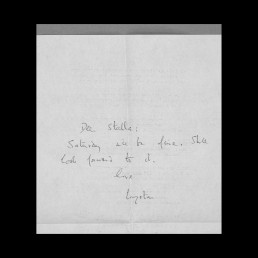 Dear Stella:
Saturday will be fine. Shall
look forward to it.
Love